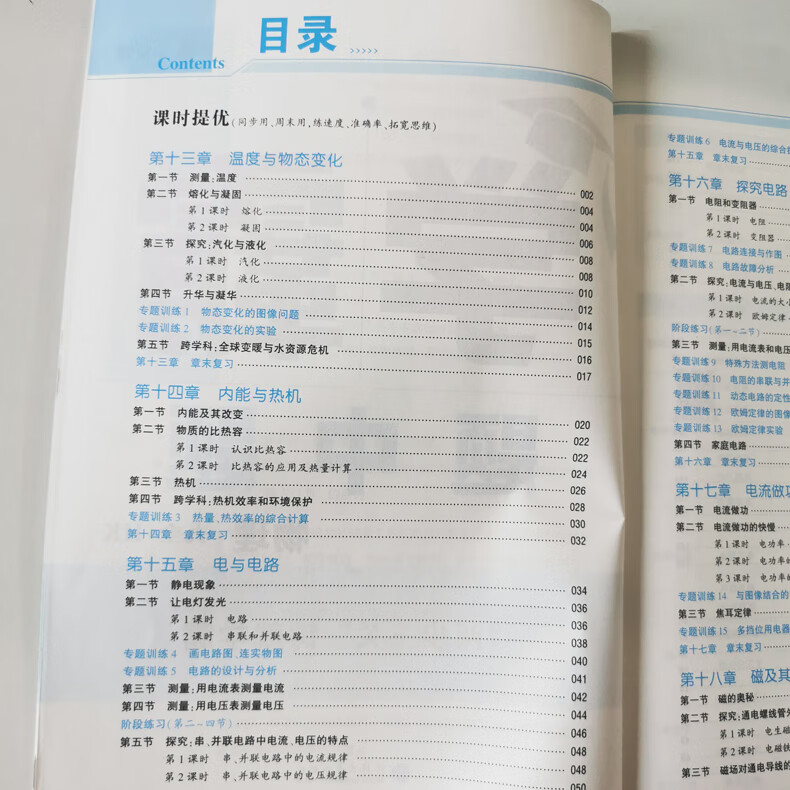 目录 >>>>>
Contents
课时提优(同步用、周末用,练速度、准确率、拓宽思维)
第十三章 温度与物态变化
第一节 测量:温度 002
第二节 熔化与凝固 004
第1课时 熔化 004
第2课时 凝固 006
第三节 探究:汽化与液化 008
第1课时 汽化 008
第2课时 液化 010
第四节 升华与凝华 012
专题训练1 物态变化的图像问题 014
专题训练2 物态变化的实验 015
第五节 跨学科:全球变暖与水资源危机 016
第十三章 章末复习 017
第十四章 内能与热机
第一节 内能及其改变 020
第二节 物质的比热容 022
第1课时 认识比热容 022
第2课时 比热容的应用及热量计算 024
第三节 热机 026
第四节 跨学科:热机效率和环境保护 028
专题训练3 热量、热效率的综合计算 030
第十四章 章末复习 032
第十五章 电与电路
第一节 静电现象 034
第二节 让电灯发光 036
第1课时 电路 036
第2课时 串联和并联电路 038
专题训练4 画电路图、连实物图 040
专题训练5 电路的设计与分析 041
第三节 测量:用电流表测量电流 042
第四节 测量:用电压表测量电压 044
阶段练习(第二~四节) 046
第五节 探究:串、并联电路中电流、电压的特点 048
第1课时 串、并联电路中的电流规律 048
第2课时 串、并联电路中的电压规律 050
专题训练6 电流与电压的综合
第十五章 章末复习
第十六章 探究电路
第一节 电阻和变阻器
第1课时 电阻
第2课时 变阻器
专题训练7 电路连接与作图
专题训练8 电路故障分析
第二节 探究:电流与电压、电阻
第1课时 电流的大
第2课时 欧姆定律
阶段练习(第一~二节)
第三节 测量:用电流表和电压
专题训练9 特殊方法测电阻
专题训练10 电阻的串联与并
专题训练11 动态电路的定性
专题训练12 欧姆定律的图像
专题训练13 欧姆定律实验
第四节 家庭电路
第十六章 章末复习
第十七章 电流做功
第一节 电流做功
第二节 电流做功的快慢
第1课时 电功率
第2课时 电功率的
第3课时 电功率的
专题训练14 与图像结合的
第三节 焦耳定律
专题训练15 多挡位用电器
第十七章 章末复习
第十八章 磁及其
第一节 磁的奥秘
第二节 探究:通电螺线管外
第1课时 电生磁
第2课时 电磁铁
第三节 磁场对通电导线的